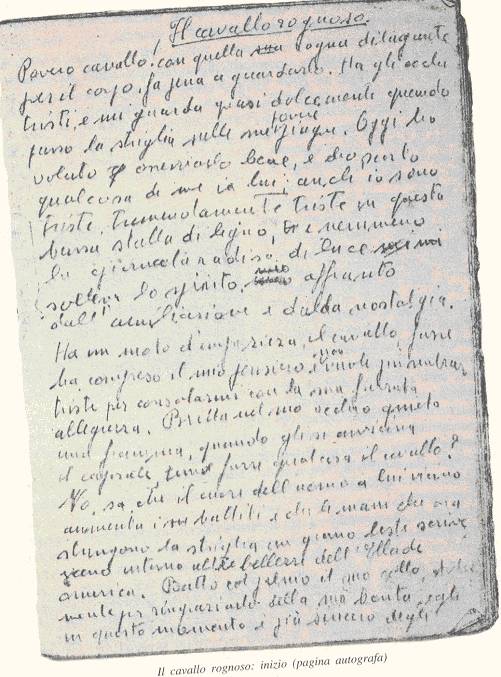 Il cavallo rognoso.
Povero cavallo, con quella rogna dilagante
per il corpo, fa pena a guardarlo. Ha gli occhi
tristi, e mi guarda quasi dolcemente quando
passo la striglia sulle sue piaghe. Oggi ho
voluto osservarlo bene, e ho scoperto
qualcosa di me in lui: anche io sono
triste, tremendamente triste in questa
bassa stalla di legno, e nemmeno
la giornata radiosa di luce
solleva lo spirito affranto
dall'umiliazione e dalla nostalgia.
Ha un moto d'impazienza, il cavallo, forse
ha compreso il mio pensiero e non vuole più sembrar
triste per consolarmi con la sua forzata
allegrezza. Brilla nel suo occhio quieto
una fiamma, quando gli si avvicina
il caporale, forse qualcosa il cavallo?
No, sa che il cuore dell'uomo a lui vicino
aumenta i suoi battiti e che le mani che ora
stringono la striglia un giorno
intorno alle bellezze dell'Ellade
omerica. Batto col palmo il suo collo,
mente per ringraziarlo della sua bontà, egli
in questo momento è più sincero degli
Il cavallo rognoso: inizio (pagina autografa)